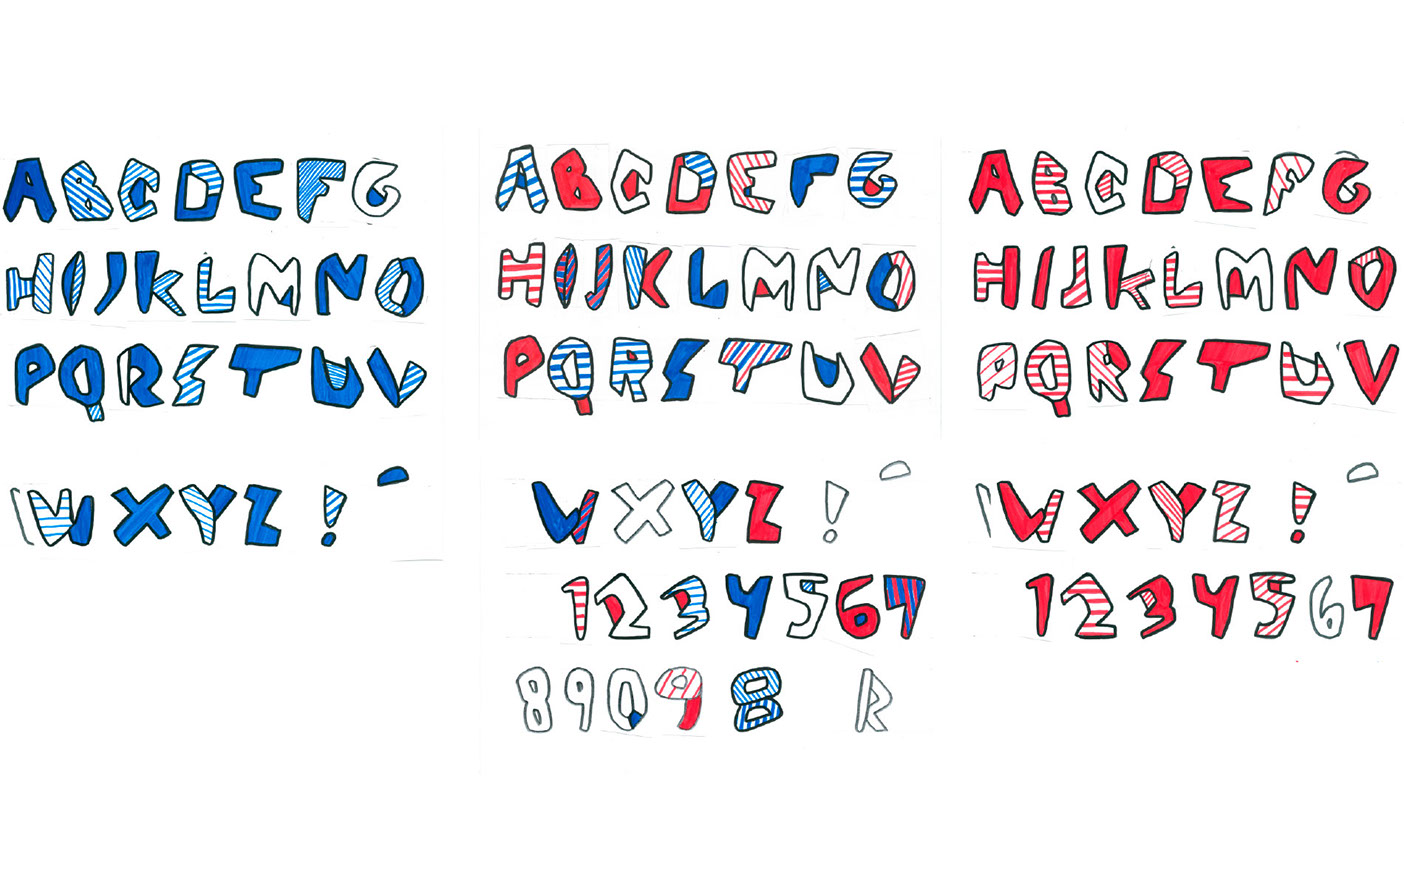 ABCDEFG
HIJKLMNO
PQRSTUV
WXYZ!
ABCDEFG
HIJKLMNO
PQRSTUV
WXYZ!
1234567
89098 R
ABCDEFG
HIJKLMNO
PQRSTUV
WXYZ!
1234567